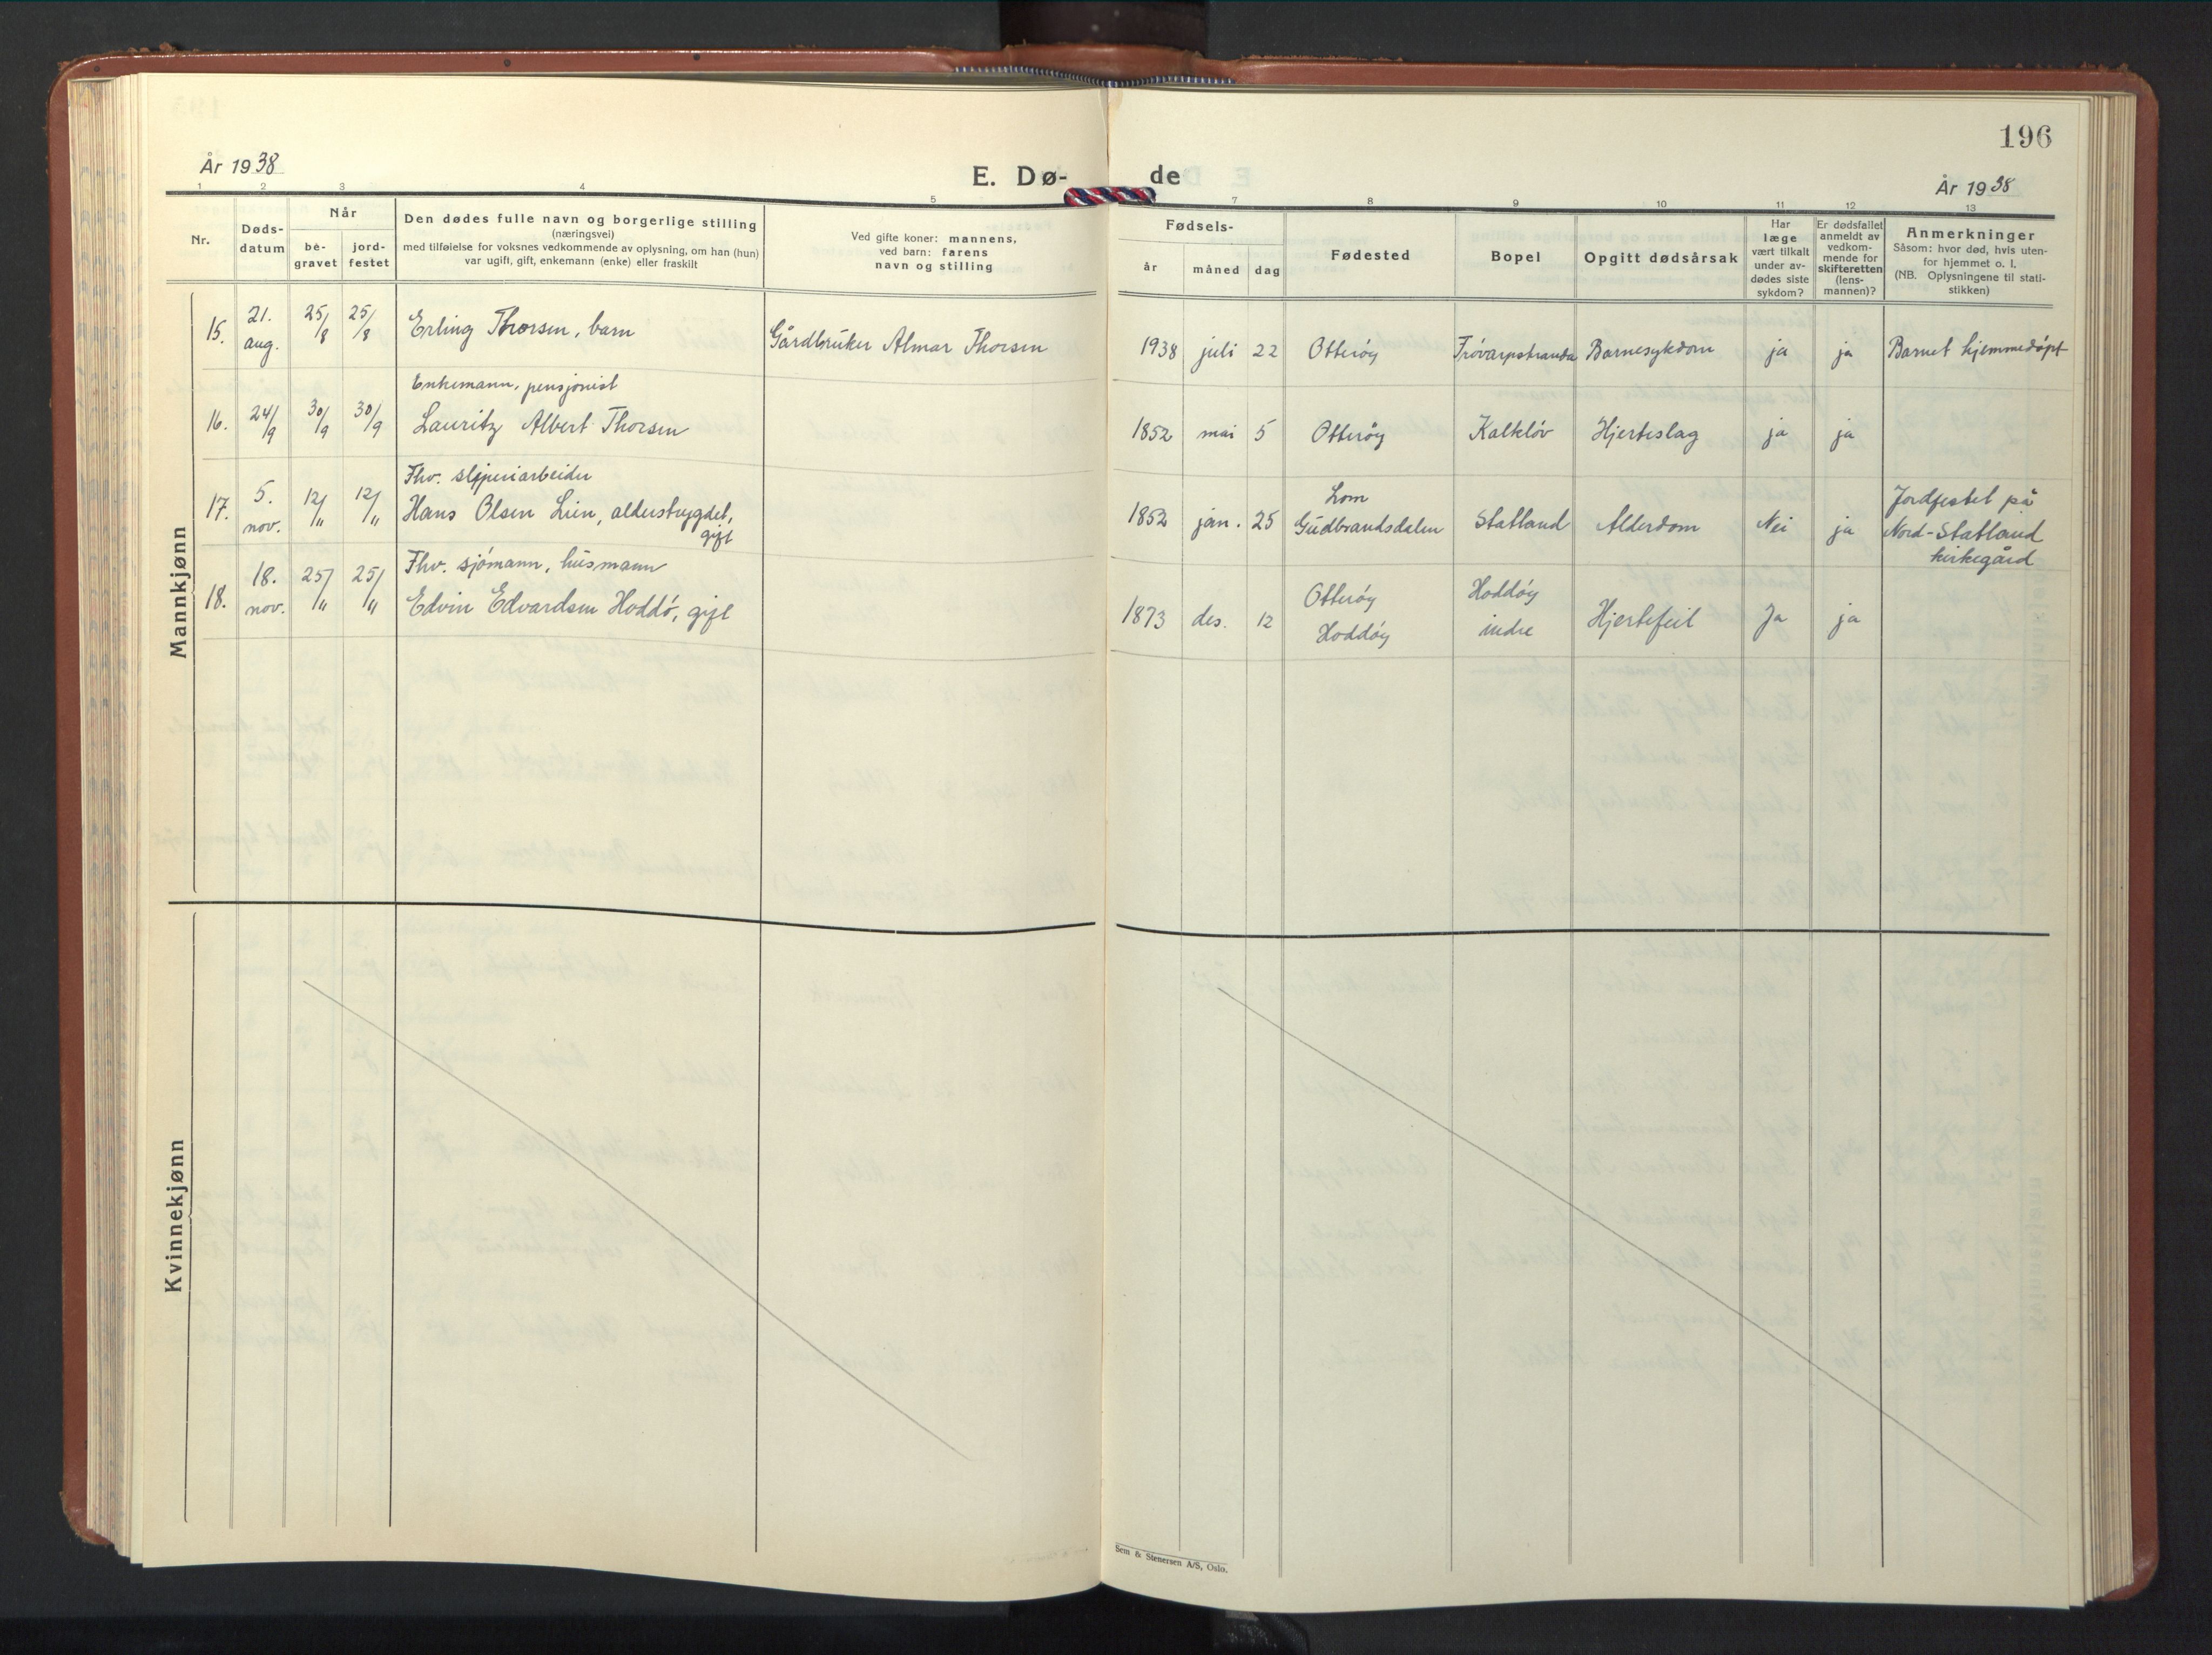 196
År 1938
E. Dø-
de
År 1938
1 2 3 4 5
7 8 9 10 11 12 13
Nr.
Døds-
datum
Når
be-
gravet
jord-
festet
Den dødes fulle navn og borgerlige stilling
(næringsvei)
med tilføielse for voksnes vedkommende av oplysning, om han (hun)
var ugift, gift, enkemann (enke) eller fraskilt
Ved gifte koner: mannens,
ved barn: farens
navn og stilling
Fødsels-
år måned dag
Fødested
Bopel
Opgitt dødsårsak
Har
læge
vært tilkalt
under av-
dødes siste
sykdom?
Er dødsfallet
anmeldt av
vedkom-
mende for
skifteretten
(lens-
mannen)?
Anmerkninger
Såsom: hvor død, hvis uten-
for hjemmet o. l.
(NB. Oplysningene til stati-
stikken)
Mannkjønn
15. 21. aug. 25/8 25/8 Erling Thorsen, barn Gårdbruker Almar Thorsen 1938 juli 22 Otterøy Barnesykdom ja ja Barnet hjemmedøpt
Enkemann, pensjonist
16. 24/9 30/9 30/9 Lauritz Albert Thorsen 1852 mai 5 Otterøy Kalkløv Hjerteslag ja ja
Fhv. sliperiarbeider
17. 5. nov. 12/11 12/11 Hans Olsen Lien, alderstrygdet,
gift
1852 jan. 25 Lom
Gudbrandsdalen Statland Alderdom Nei ja Jordfestet på
Nord-Statland
kirkegård
Fhv. sjømann, husmann
18. 18. nov. 25/11 25/11 Edvin Edvardsen Hoddø, gift 1873 des. 12 Otterøy
Hoddøy
Hoddøy
indre
Hjertefeil Ja ja
Kvinnekjønn
Sem & Stenersen A/S, Oslo.